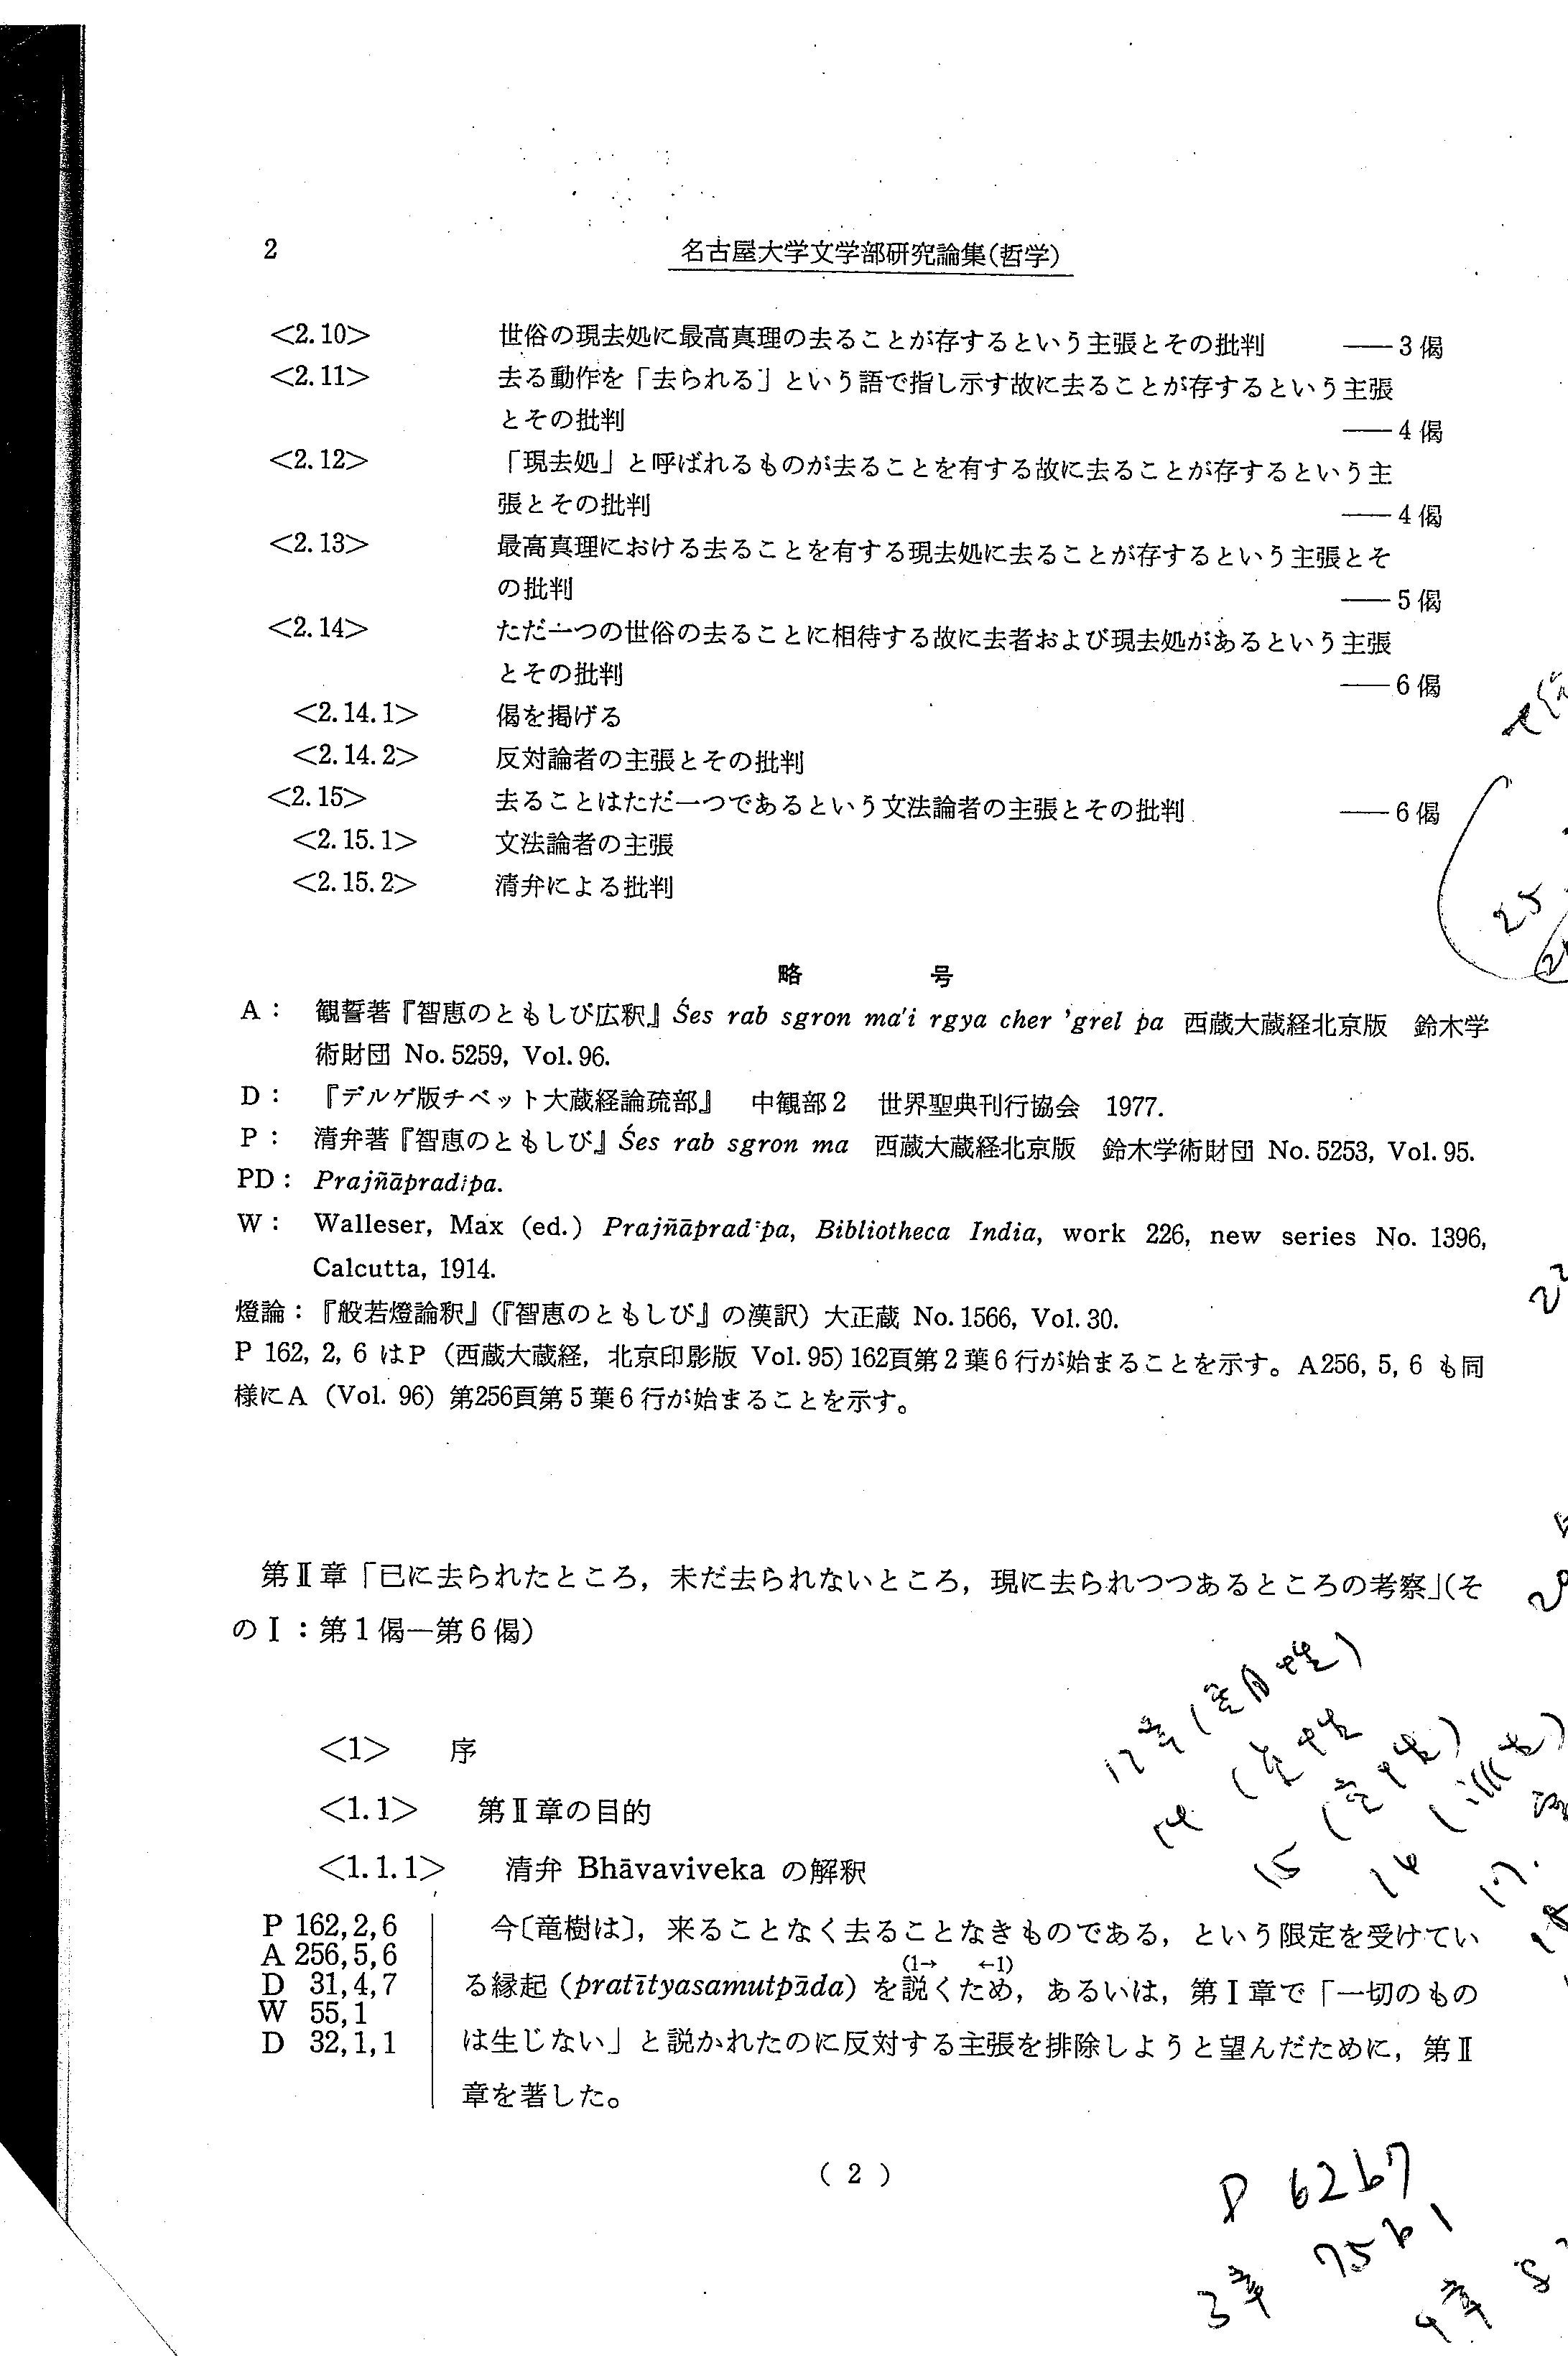 2
名古屋大学文学部研究論集(哲学)
<2.10> 世俗の現去処に最高真理の去ることが存するという主張とその批判 ——3偈
<2.11> 去る動作を「去られる」という語で指し示す故に去ることが存するという主張
とその批判 ——4偈
<2.12> 「現去処」と呼ばれるものが去ることを有する故に去ることが存するという主
張とその批判 ——4偈
<2.13> 最高真理における去ることを有する現去処に去ることが存するという主張とそ
の批判 ——5偈
<2.14> ただ一つの世俗の去ることに相待する故に去者および現去処があるという主張
とその批判 ——6偈
<2.14.1> 偈を掲げる
<2.14.2> 反対論者の主張とその批判
<2.15> 去ることはただ一つであるという文法論者の主張とその批判 ——6偈
<2.15.1> 文法論者の主張
<2.15.2> 清弁による批判
略 号
A: 観誓著『智恵のともしび広釈』Śes rab sgron ma'i rgya cher 'grel pa 西蔵大蔵経北京版 鈴木学
術財団 No. 5259, Vol. 96.
D: 『デルゲ版チベット大蔵経論疏部』 中観部2 世界聖典刊行協会 1977.
P: 清弁著『智恵のともしび』Śes rab sgron ma 西蔵大蔵経北京版 鈴木学術財団 No. 5253, Vol. 95.
PD: Prajñāpradīpa.
W: Walleser, Max (ed.) Prajñāpradīpa, Bibliotheca India, work 226, new series No. 1396,
Calcutta, 1914.
燈論:『般若燈論釈』(『智恵のともしび』の漢訳) 大正蔵 No. 1566, Vol. 30.
P 162, 2, 6 はP (西蔵大蔵経, 北京印影版 Vol. 95) 162頁第2葉6行が始まることを示す。A256, 5, 6 も同
様にA (Vol. 96) 第256頁第5葉6行が始まることを示す。
第Ⅱ章「已に去られたところ, 未だ去られないところ, 現に去られつつあるところの考察」(そ
のⅠ:第1偈—第6偈)
<1> 序
<1.1> 第Ⅱ章の目的
<1.1.1> 清弁 Bhāvaviveka の解釈
P 162,2,6
A 256,5,6
D 31,4,7
W 55,1
D 32,1,1
今〔竜樹は〕, 来ることなく去ることなきものである, という限定を受けてい
(1→ ←1)
る縁起 (pratītyasamutpāda) を説くため, あるいは, 第Ⅰ章で「一切のもの
は生じない」と説かれたのに反対する主張を排除しようと望んだために, 第Ⅱ
章を著した。
( 2 )
25
P 62b7
3章 75b1
4章 8